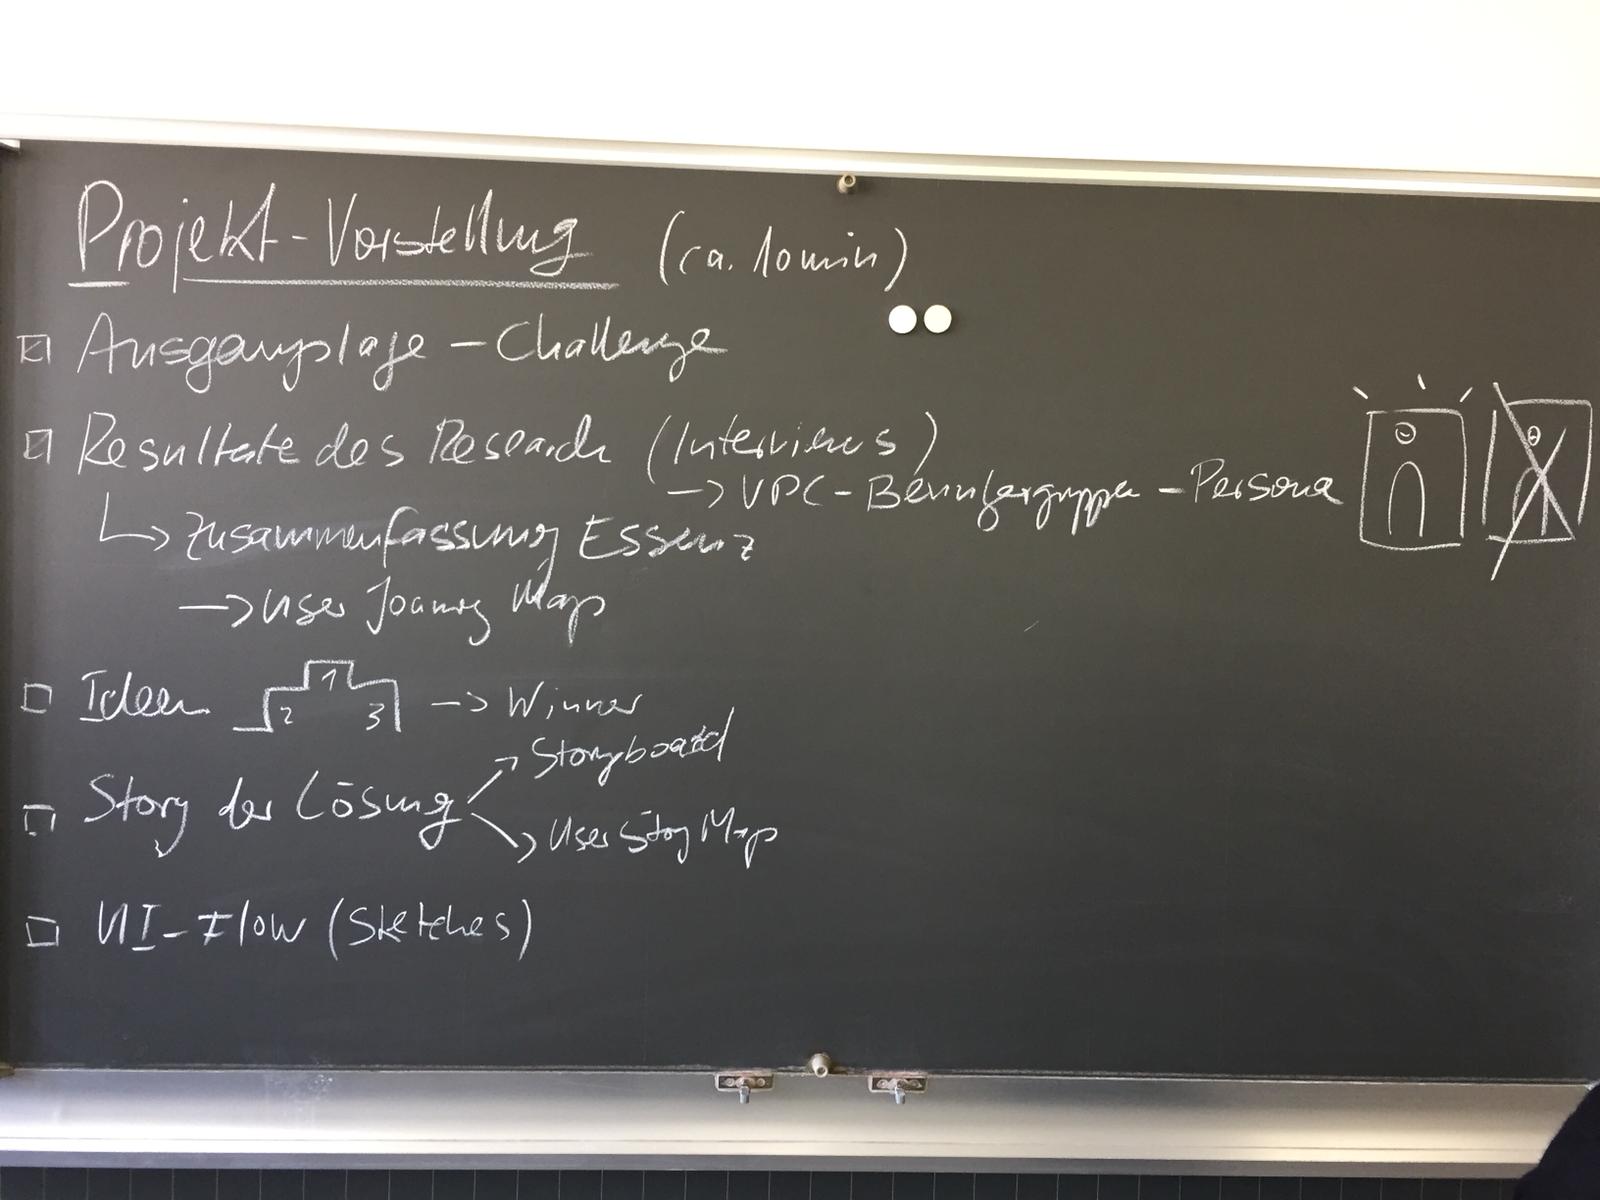 Projekt-Vorstellung (ca. 10min)
Ausgangslage - Challenge
Resultate des Research (Interviews)
→ VPC - Benutzergruppe - Persona
↳ Zusammenfassung Essenz
→ User Journey Map
Ideen 2 1 3 → Winner
Story der Lösung
↗ Storyboard
↘ User Story Map
UI-Flow (Sketches)